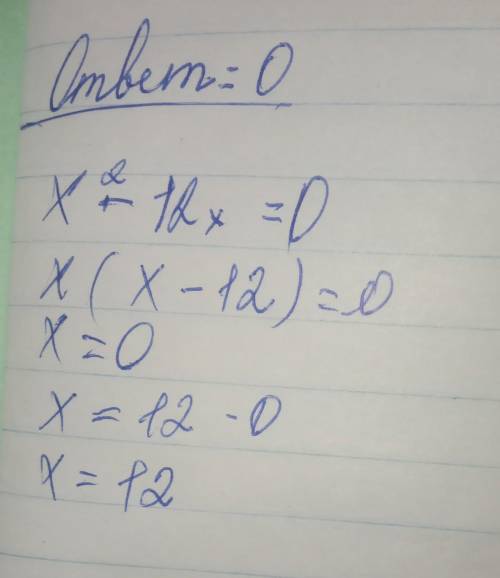 Ответ = 0
x² - 12x = 0
x ( x - 12 ) = 0
x = 0
x = 12 - 0
x = 12